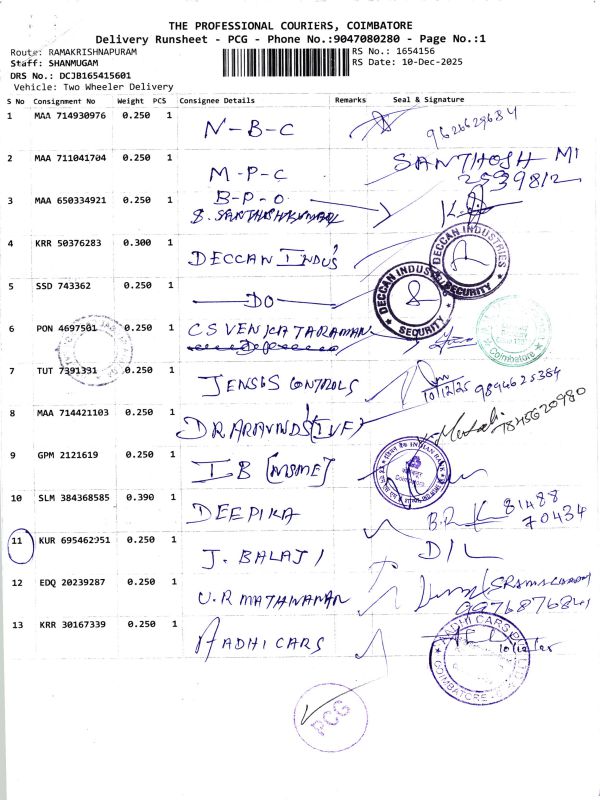 THE PROFESSIONAL COURIERS, COIMBATORE
Delivery Runsheet - PCG - Phone No.:9047080280 - Page No.:1
Route: RAMAKRISHNAPURAM RS No.: 1654156
Staff: SHANMUGAM RS Date: 10-Dec-2025
DRS No.: DCJB165415601
Vehicle: Two Wheeler Delivery
S No Consignment No Weight PCS Consignee Details Remarks Seal & Signature
1 MAA 714930976 0.250 1 N-B-C 9626629684
2 MAA 711041704 0.250 1 M-P-C SANTHOSH MI
2539812
3 MAA 650334921 0.250 1 B-P-O
S. SANTHOSHKUMAR
4 KRR 50376283 0.300 1 DECCAN INDUS DECCAN INDUSTRIES SECURITY
5 SSD 743362 0.250 1 DO DECCAN INDUSTRIES SECURITY
6 PON 4697501 0.250 1 CS VENKATARAMAN Coimbatore
7 TUT 7391331 0.250 1 JENSGS CONTROLS 10/12/25 9894625384
8 MAA 714421103 0.250 1 DR ARAVINDS (IVF) 7845620980
9 GPM 2121619 0.250 1 IB [MSME] INDIAN BANK
10 SLM 384368585 0.390 1 DEEPIKA B.R K 81488
70434
11 KUR 695462951 0.250 1 J. BALAJI D/L
12 EDQ 20239287 0.250 1 U.R MATHNAMAN
9976876841
13 KRR 30167339 0.250 1 AADHI CARS AADHI CARS COIMBATORE 10/12/25
PCG